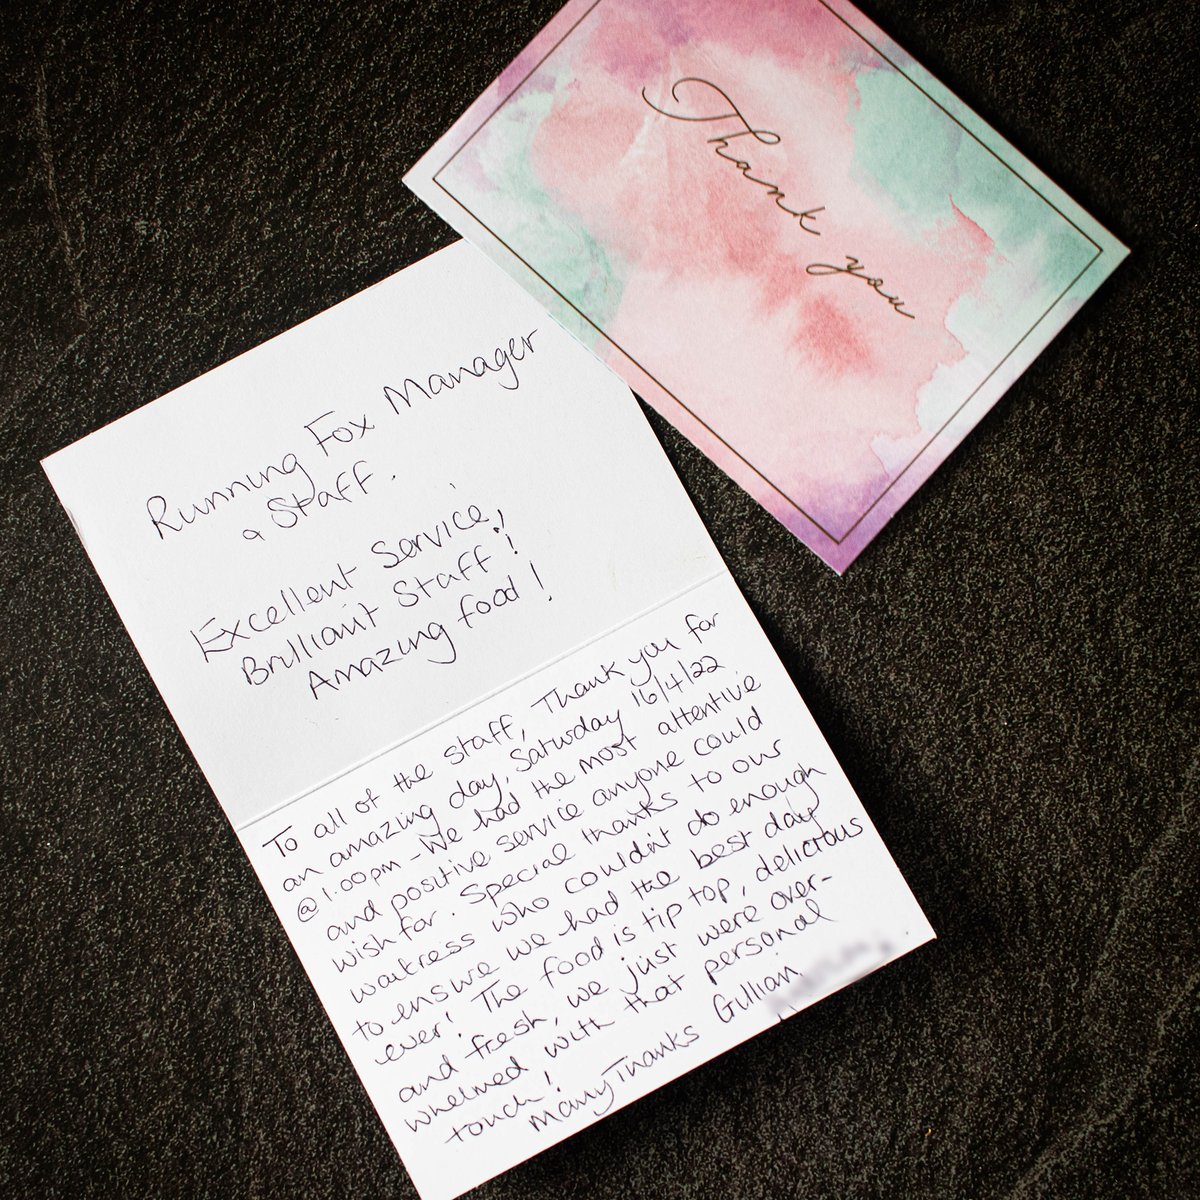 Thank you
Running Fox Manager
& Staff.
Excellent Service!
Brilliant Staff!
Amazing food!
To all of the staff, Thank you for
an amazing day, Saturday 16/4/22
@ 1.00pm - We had the most attentive
and positive service anyone could
wish for. Special thanks to our
waitress who couldn't do enough
to ensure we had the best day
ever! The food is tip top, delicious
and fresh, we just were over-
whelmed with that personal
touch!
Many Thanks Gillian